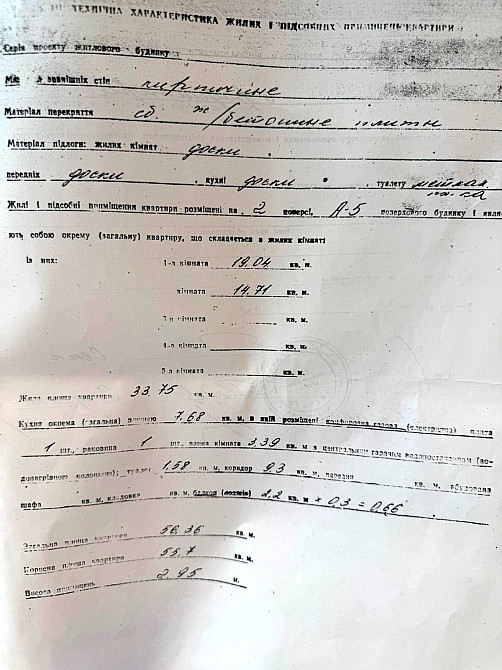 ТЕХНІЧНА ХАРАКТЕРИСТИКА ЖИЛИХ І ПІДСОБНИХ ПРИМІЩЕНЬ КВАРТИРИ
Серія проекту житлового будинку
зовнішніх стін кирпичные
Матеріал перекриття сб. ж/бетонные плиты
Матеріал підлоги: жилих кімнат доски
передніх доски, кухні доски, туалету
Жилі і підсобні приміщення квартири розміщені на 2 поверсі, А-5 поверхового будинку і явля-
ють собою окрему (загальну) квартиру, що складається з жилих кімнат
із них:
1-а кімната 19.04 кв. м.
кімната 14.71 кв. м.
3-я кімната кв. м.
4-а кімната кв. м.
5-а кімната кв. м.
Жила площа квартири 33.75 кв. м.
Кухня окрема (загальна) площею 7,68 кв. м, в якій розміщені конфорочна газова (електрична) плита
1 шт., раковина 1 шт., ванна кімната 3,39 кв. м з центральним гарячим водопостачанням (во-
донагрівною колонкою); туалет 1,58 кв. м, коридор 9,3 кв. м, передня кв. м, вбудована
шафа кв. м, кладовка кв. м, балкон (лоджія) 2,2 кв. м × 0,3 = 0,66
Загальна площа квартири 56,36 кв. м.
Корисна площа квартири 55,7 кв. м.
Висота приміщень 2,95 м.